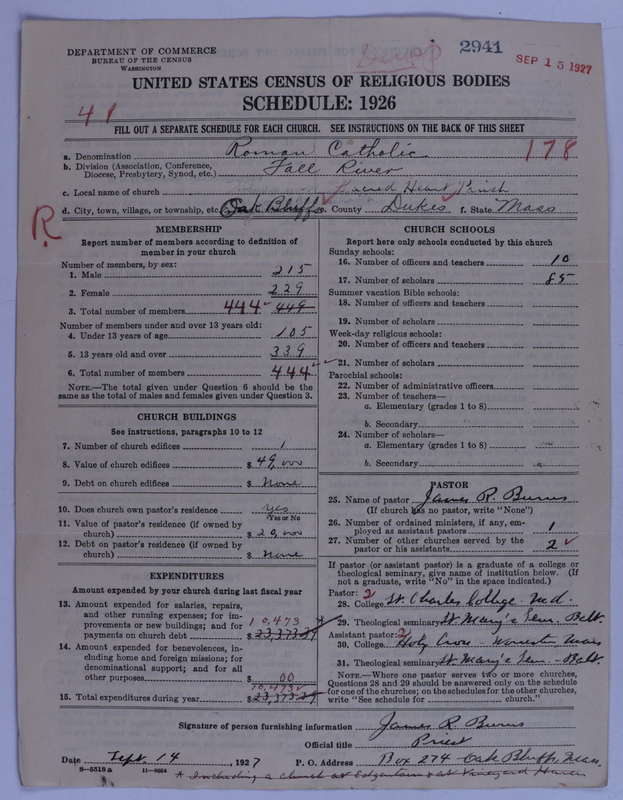 DEPARTMENT OF COMMERCE
BUREAU OF THE CENSUS
WASHINGTON
2941
SEP 15 1927
UNITED STATES CENSUS OF RELIGIOUS BODIES
SCHEDULE: 1926
41
FILL OUT A SEPARATE SCHEDULE FOR EACH CHURCH. SEE INSTRUCTIONS ON THE BACK OF THIS SHEET
178
a. Denomination Roman Catholic
b. Division (Association, Conference, Diocese, Presbytery, Synod, etc.) Fall River
c. Local name of church Sacred Heart Prish
d. City, town, village, or township, etc. Oak Bluffs e. County Dukes f. State Mass
R
MEMBERSHIP
Report number of members according to definition of
member in your church
Number of members, by sex:
1. Male 215
2. Female 229
3. Total number of members 444 449
Number of members under and over 13 years old:
4. Under 13 years of age 105
5. 13 years old and over 339
6. Total number of members 444
NOTE.—The total given under Question 6 should be the
same as the total of males and females given under Question 3.
CHURCH BUILDINGS
See instructions, paragraphs 10 to 12
7. Number of church edifices 1
8. Value of church edifices $ 49,000
9. Debt on church edifices $ None
10. Does church own pastor's residence? yes
Yes or No
11. Value of pastor's residence (if owned by
church) $ 20,000
12. Debt on pastor's residence (if owned by
church) $ None
EXPENDITURES
Amount expended by your church during last fiscal year
13. Amount expended for salaries, repairs,
and other running expenses; for im-
provements or new buildings; and for 10,473
payments on church debt $ 23,373.29
14. Amount expended for benevolences, in-
cluding home and foreign missions; for
denominational support; and for all
other purposes $ 00
10,473
15. Total expenditures during year $ 23,373.29
CHURCH SCHOOLS
Report here only schools conducted by this church
Sunday schools:
16. Number of officers and teachers 10
17. Number of scholars 85
Summer vacation Bible schools:
18. Number of officers and teachers
19. Number of scholars
Week-day religious schools:
20. Number of officers and teachers
21. Number of scholars
Parochial schools:
22. Number of administrative officers
23. Number of teachers—
a. Elementary (grades 1 to 8)
b. Secondary
24. Number of scholars—
a. Elementary (grades 1 to 8)
b. Secondary
PASTOR
25. Name of pastor James R. Burns
(If church has no pastor, write "None")
26. Number of ordained ministers, if any, em-
ployed as assistant pastors 1
27. Number of other churches served by the
pastor or his assistants 2
If pastor (or assistant pastor) is a graduate of a college or
theological seminary, give name of institution below. (If
not a graduate, write "No" in the space indicated.)
Pastor: 2
28. College St. Charles College Md.
29. Theological seminary St. Mary's Sem. Balt.
Assistant pastor: 2
30. College Holy Cross - Worcester, Mass
31. Theological seminary St. Mary's Sem. - Balt.
NOTE.—Where one pastor serves two or more churches,
Questions 28 and 29 should be answered only on the schedule
for one of the churches; on the schedules for the other churches,
write "See schedule for church."
Signature of person furnishing information James R Burns
Official title Priest
Date Sept. 14, 1927 P. O. Address Box 274 Oak Bluffs, Mass.
8-5518a 11-6664
* Including a church at Edgartown & at Vineyard Haven